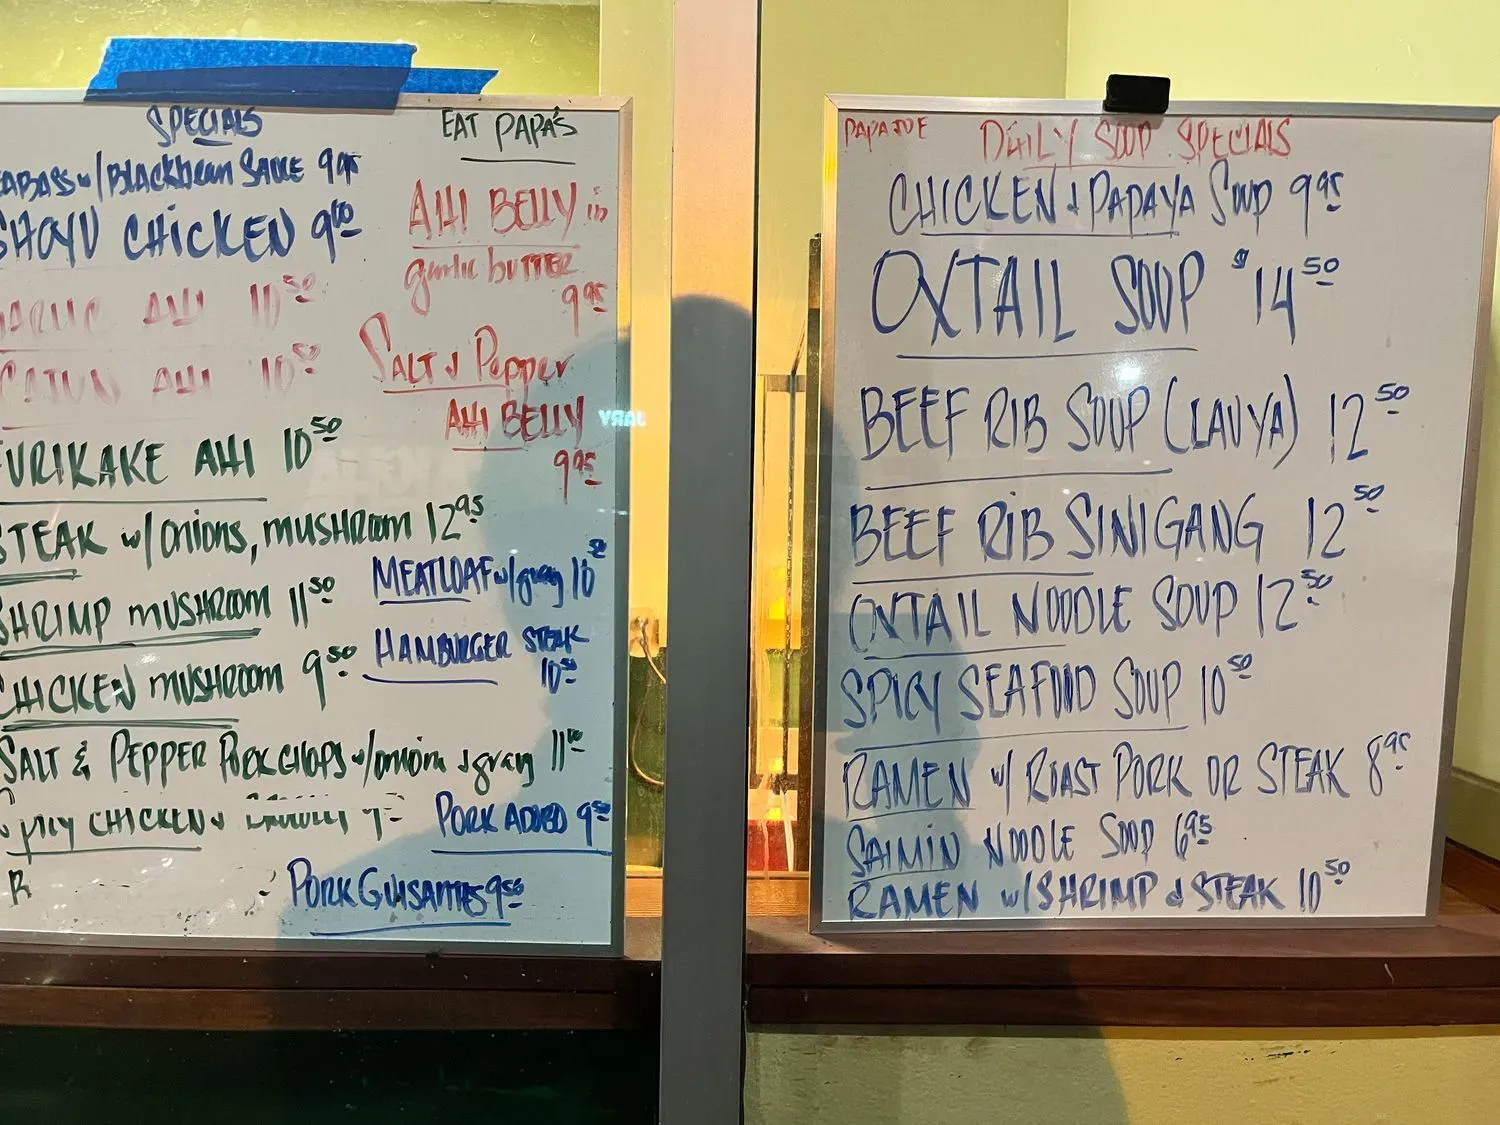 SPECIALS
EABASS w/ Blackbean SAUCE 9 95
SHOYU CHICKEN 9 00
GARLIC AHI 10 50
CAJUN AHI 10 50
FURIKAKE AHI 10 50
STEAK w/ onions, mushroom 12 95
SHRIMP mushroom 11 50
CHICKEN mushroom 9 50
SALT & PEPPER Pork CHOPS w/ onion & gravy 11 00
Spicy CHICKEN &
R
EAT PAPA'S
AHI BELLY in
garlic butter
9 95
SALT & Pepper
AHI BELLY
9 95
MEATLOAF w/ gravy 10 50
HAMBURGER STEAK
10 50
PORK ADOBO 9 50
PORK GUISANTES 9 50
PAPA JOE
DAILY SOUP SPECIALS
CHICKEN & PAPAYA Soup 9 95
OXTAIL SOUP $14 50
BEEF RIB SOUP (LAUYA) 12 50
BEEF RIB SINIGANG 12 50
OXTAIL NOODLE SOUP 12 50
SPICY SEAFOOD SOUP 10 50
RAMEN w/ ROAST PORK OR STEAK 8 95
SAIMIN NOODLE SOUP 6 95
RAMEN w/ SHRIMP & STEAK 10 50